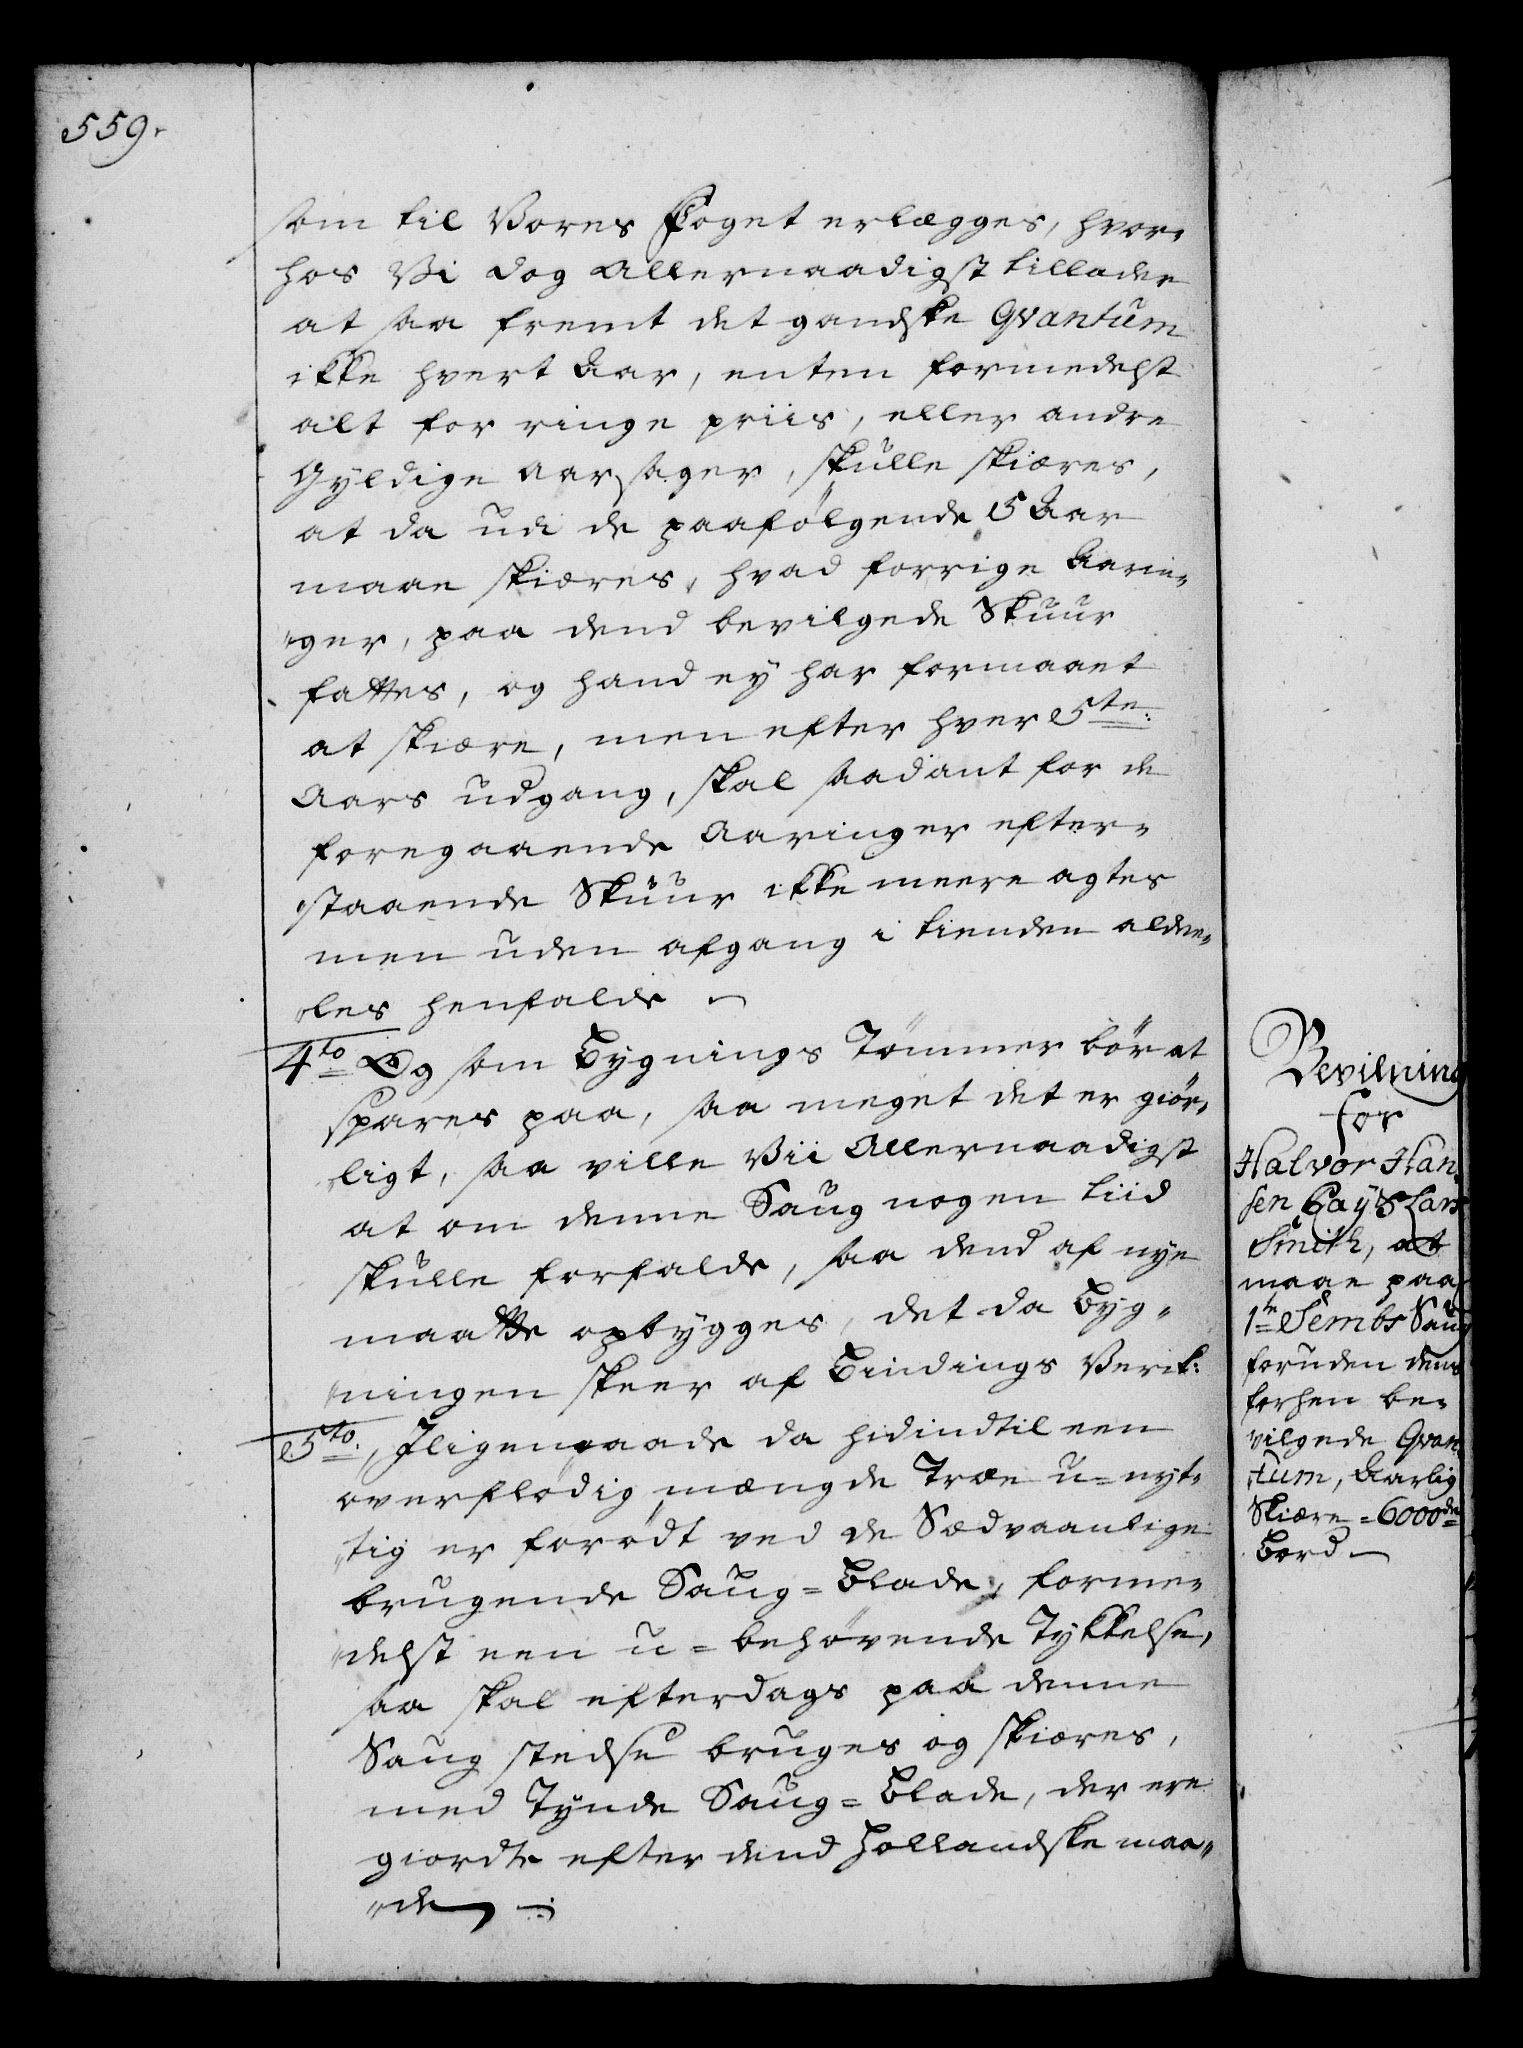 559.
som til Vores Foget erlægges, hvor-
hos Vi dog Allernaadigst tillader
at saa fremt det gandske Qvantum
ikke hvert Aar, enten formedelst
alt for ringe priis, eller andre
Gyldige Aarsager, skulle skiæres,
at da udi de paafølgende 5 Aar
maae skiæres, hvad forrige Aarin-
ger, paa dend bevilgede Skuur
fattes, og hand ey har formaaet
at skiære, men efter hver 5te:
Aars udgang, skal saadant for de
foregaaende Aaringer efter-
staaende Skuur ikke meere agtes
men uden afgang i tienden aldee-
les henfalde
4to Og som Bygnings Tømmer bør at
spares paa, saa meget det er giør-
ligt, saa ville Vii Allernaadigst
at om denne Saug nogen tiid
skulle forfalde, saa dend af nye
maatte opbygges, det da Byg-
ningen skeer af Bindings Verck:
5to., Jligemaade da hidindtil een
overflødig mængde Træe u=nyt-
tig er forødt ved de Sædvaanlige
brugende Saug=Blade, forme-
delst een u=behøvende Tykkelse,
saa skal efterdags paa denne
Saug stedse bruges og skiæres,
med Tynde Saug=Blade, der ere
giordte efter dend Hollandske maa-
de
Bevilning
for
Halvor Han
sen Cay's Lars
Smith, at
maae paa
1te Sembs Saug
foruden dend
forhen be-
vilgede Qvan-
tum, Aarlig
Skiære = 6000de
Bord